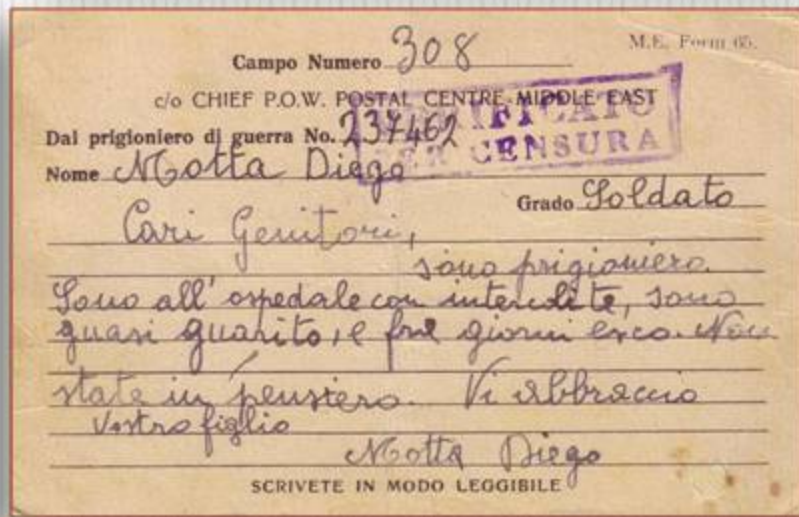 M.E. Form 65.
Campo Numero 308
c/o CHIEF P.O.W. POSTAL CENTRE MIDDLE EAST
Dal prigioniero di guerra No. 237462
CENSURA
Nome Motta Diego
Grado Soldato
Cari Genitori,
sono prigioniero.
Sono all'ospedale con intercolite, sono
quasi guarito, e fra giorni esco. Non
state in pensiero. Vi abbraccio
Vostro figlio
Motta Diego
SCRIVETE IN MODO LEGGIBILE